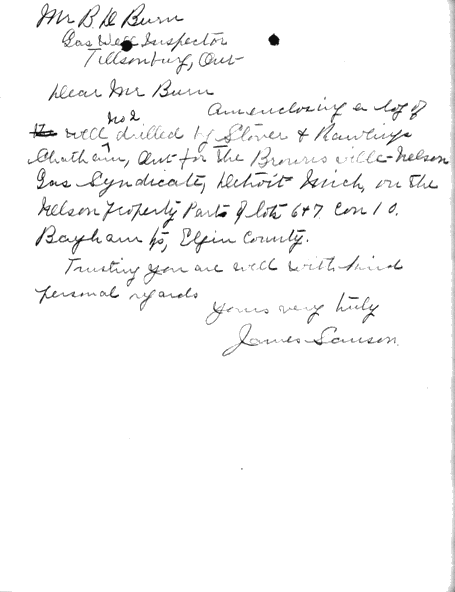 Mr B. D Burn
Gas Well Inspector
Tillsonburg, Ont
Dear Mr Burn
Am enclosing a log of
No 2
well drilled by Stover & Rawlings
Chatham, Ont for the Brownsville-Nelson
Gas Syndicate, Detroit Mich, on the
Nelson Property Parts of lots 6+7 Con 10.
Bayham Tp, Elgin County.
Trusting you are well with kind
personal regards
Yours very truly
James